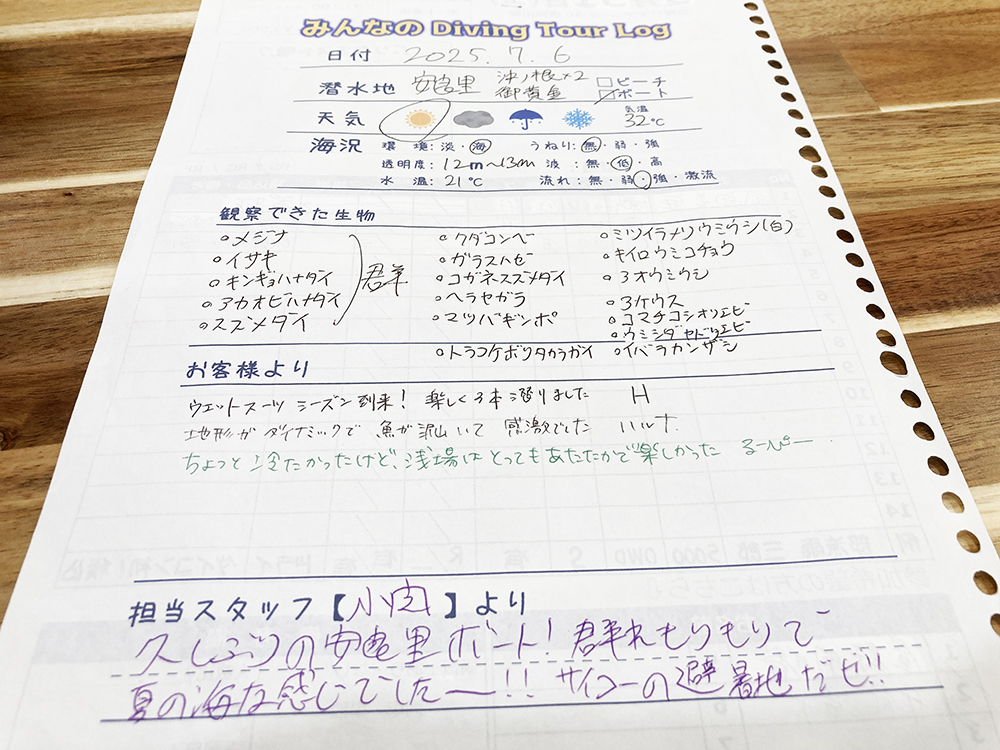 みんなの Diving Tour Log
日付 2025. 7. 6
潜水地 安良里 沖ノ根×2 御黄金 □ビーチ ☑ボート
天気 気温 32℃
海況 環境:淡・海 うねり:無・弱・強
透明度:12m〜13m 波:無・低・高
水温:21℃ 流れ:無・弱・強・激流
観察できた生物
○メジナ ○クダゴンベ ○ミツイラメリウミウシ(白)
○イサキ ○ガラスハゼ ○キイロウミコチョウ
○キンギョハナダイ 群 ○コガネスズメダイ ○ミオウミウシ
○アカオビハナダイ ○ヘラヤガラ ○ミケウス
○スズメダイ ○マツバギンポ ○コマチコシオリエビ
○ウミシダヤドリエビ
○トラフケボリタカラガイ ○イバラカンザシ
お客様より
ウエットスーツ シーズン到来! 楽しく3本潜りました H
地形がダイナミックで 魚が沢山いて 感激でした ハルナ
ちょっと冷たかったけど、浅場はとってもあたたかで楽しかった るーぴー
担当スタッフ【小肉】より
久しぶりの安良里ボート! 群れもりもりで
夏の海な感じでしたー!! サイコーの避暑地だぜ!!